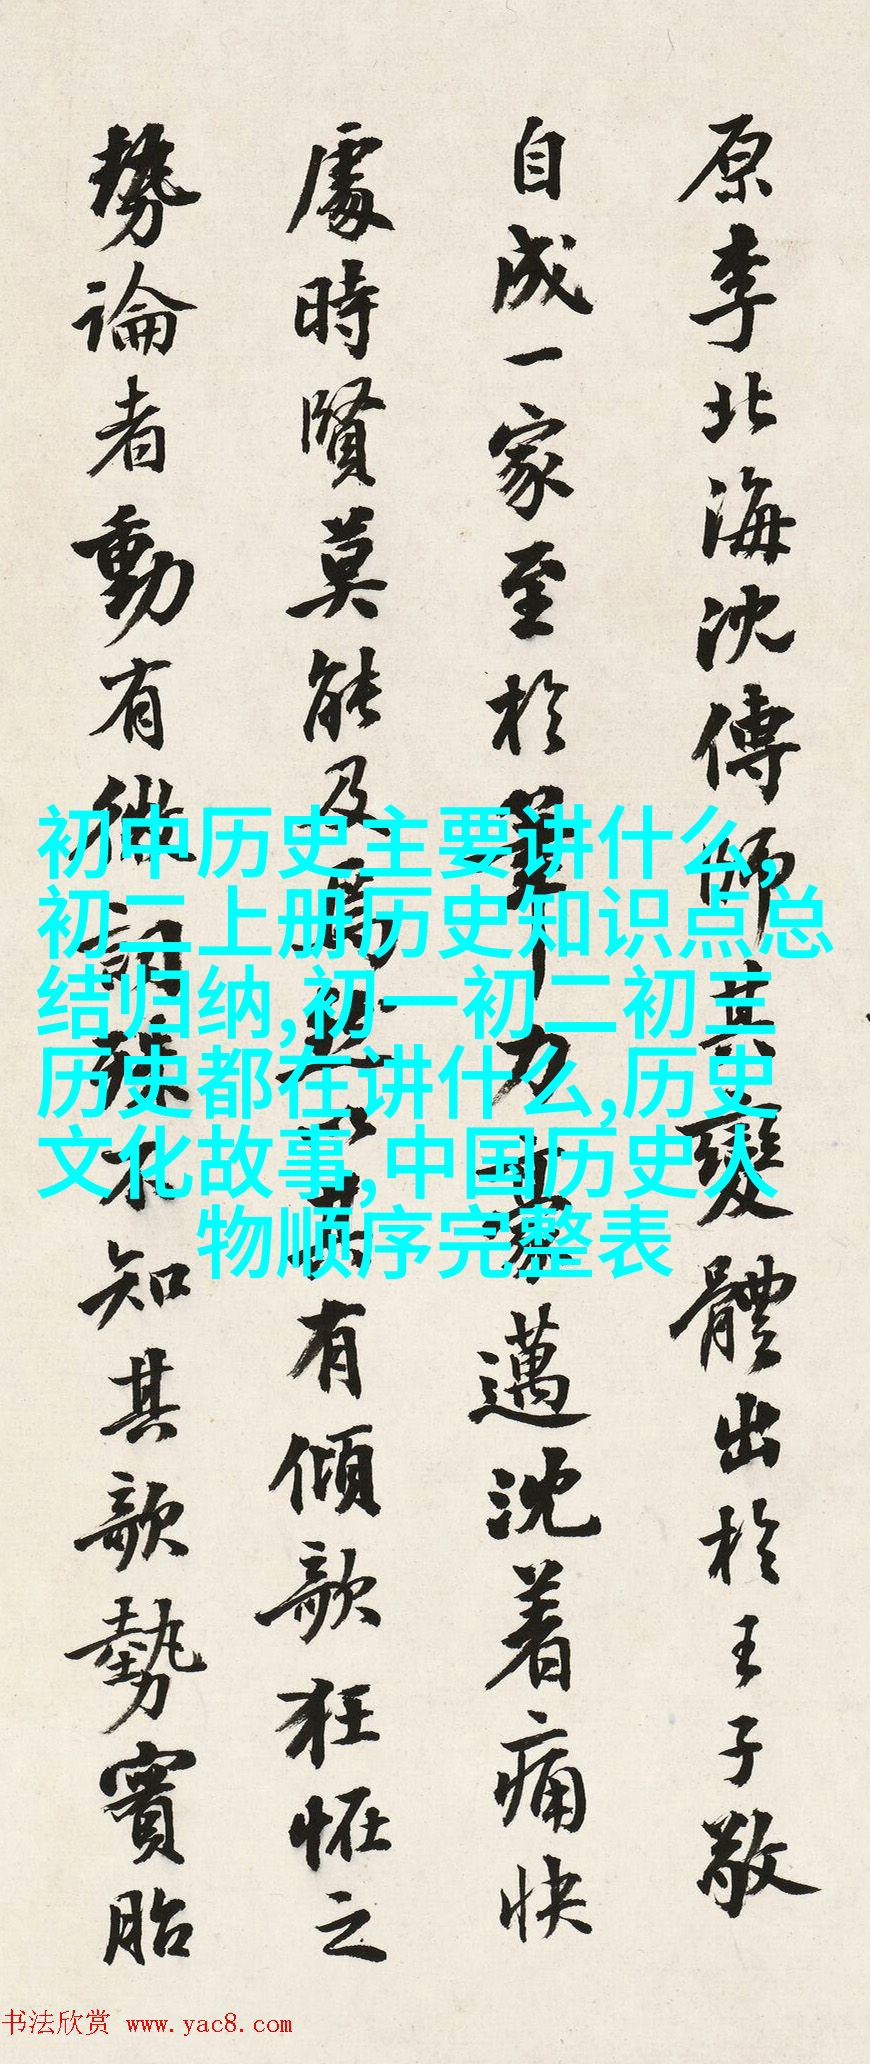 原李北海沈傳師其變體出於王子敬
自成一家至於筆力豪邁沈着痛快
處時賢莫能及焉然以其有傾欹狂怪之
勢論者動有微詞殊不知其欹勢實胎
初中历史主要讲什么,
初二上册历史知识点总
结归纳,初一初二初三
历史都在讲什么,历史
文化故事,中国历史人
物顺序完整表
书法欣赏 www.yac8.com